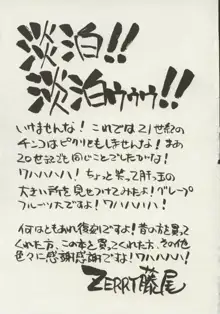 淡泊!!
淡泊ゥゥゥ!!
いけませんな! これでは21世紀の
チンコはピクリともしませんな! まあ
20世紀でも同じことでしたがな!
ワハハハハ! ちょっと笑って肝っ玉の
大きい所を見せつけてみたよ! グレープ
フルーツですよ! ワハハハハ!
何はともあれ復刻ですよ! 昔の方を買って
くれた方、この本を買ってくれた方、その他
色々に感謝感謝ですよ! ワハハハハ!
ZERRY藤尾